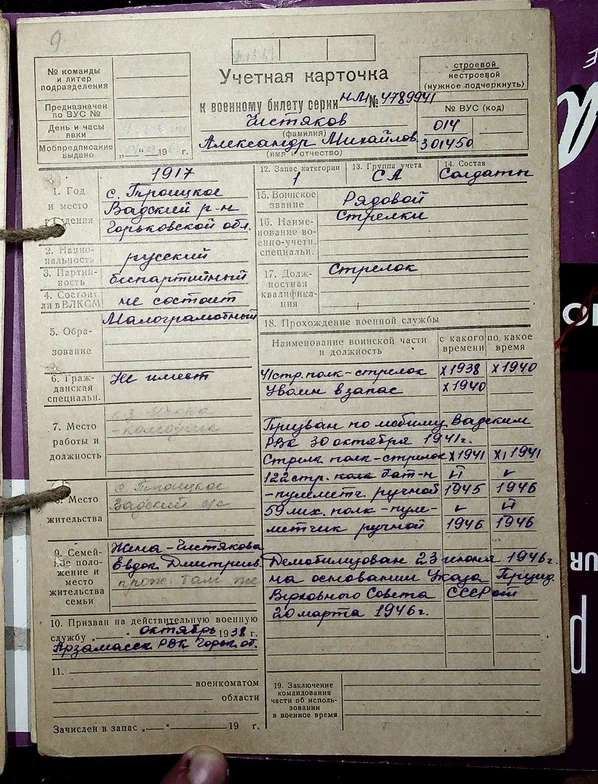 9
№ команды
и литер
подразделения
Предназначен
по ВУС №
День и часы
явки
Мобпредписание
выдано „ “ 19 г.
Учетная карточка
к военному билету серии НЛ № 4789941
Чистяков
(фамилия)
Александр Михайлов.
(имя и отчество)
строевой
нестроевой
(нужное подчеркнуть)
№ ВУС (код)
014
301450
1. Год
и место
рождения
1917
с. Троицкое
Вадский р-н
Горьковской обл.
2. Нацио-
нальность
русский
3. Партий-
ность
беспартийный
4. Состоит
ли в ВЛКСМ
не состоит
5. Обра-
зование
Малограмотный
6. Граж-
данская
специальн.
Не имеет
7. Место
работы и
должность
8. Место
жительства
с. Троицкое
Вадский с/с
9. Семей-
ное поло-
жение и
место
жительства
семьи
Жена - Чистякова
Евдок. Дмитриев.
прож. там же
10. Призван на действительную военную
службу „ октябрь 1938 г.
Арзамасск РВК Горьк. об.
11.
военкоматом
области
Зачислен в запас „ “ 19 г.
12. Запас категории
1
13. Группа учета
СА
14. Состав
Солдаты
15. Воинское
звание
Рядовой
16. Наиме-
нование во-
енно-учетн.
специальн.
Стрелки
17. Долж-
ностная
квалифика-
ция
Стрелок
18. Прохождение военной службы
Наименование воинской части
и должность
с какого
времени
по какое
время
стр. полк - стрелок X 1938 X 1940
Уволен в запас X 1940
Призван по мобилиз. Вадским
РВК 30 октября 1941 г.
Стрелк полк - стрелок X 1941 XI 1941
122 стр. полк бат-н II V
-пулеметч. ручной 1945 1946
59 мех. полк - пуле- V II
метчик ручной 1946 1946
Демобилизован 23 июня 1946 г.
на основании Указа Презид.
Верховного Совета СССР от
20 марта 1946 г.
19. Заключение
командования
части об исполь-
зовании
в военное время